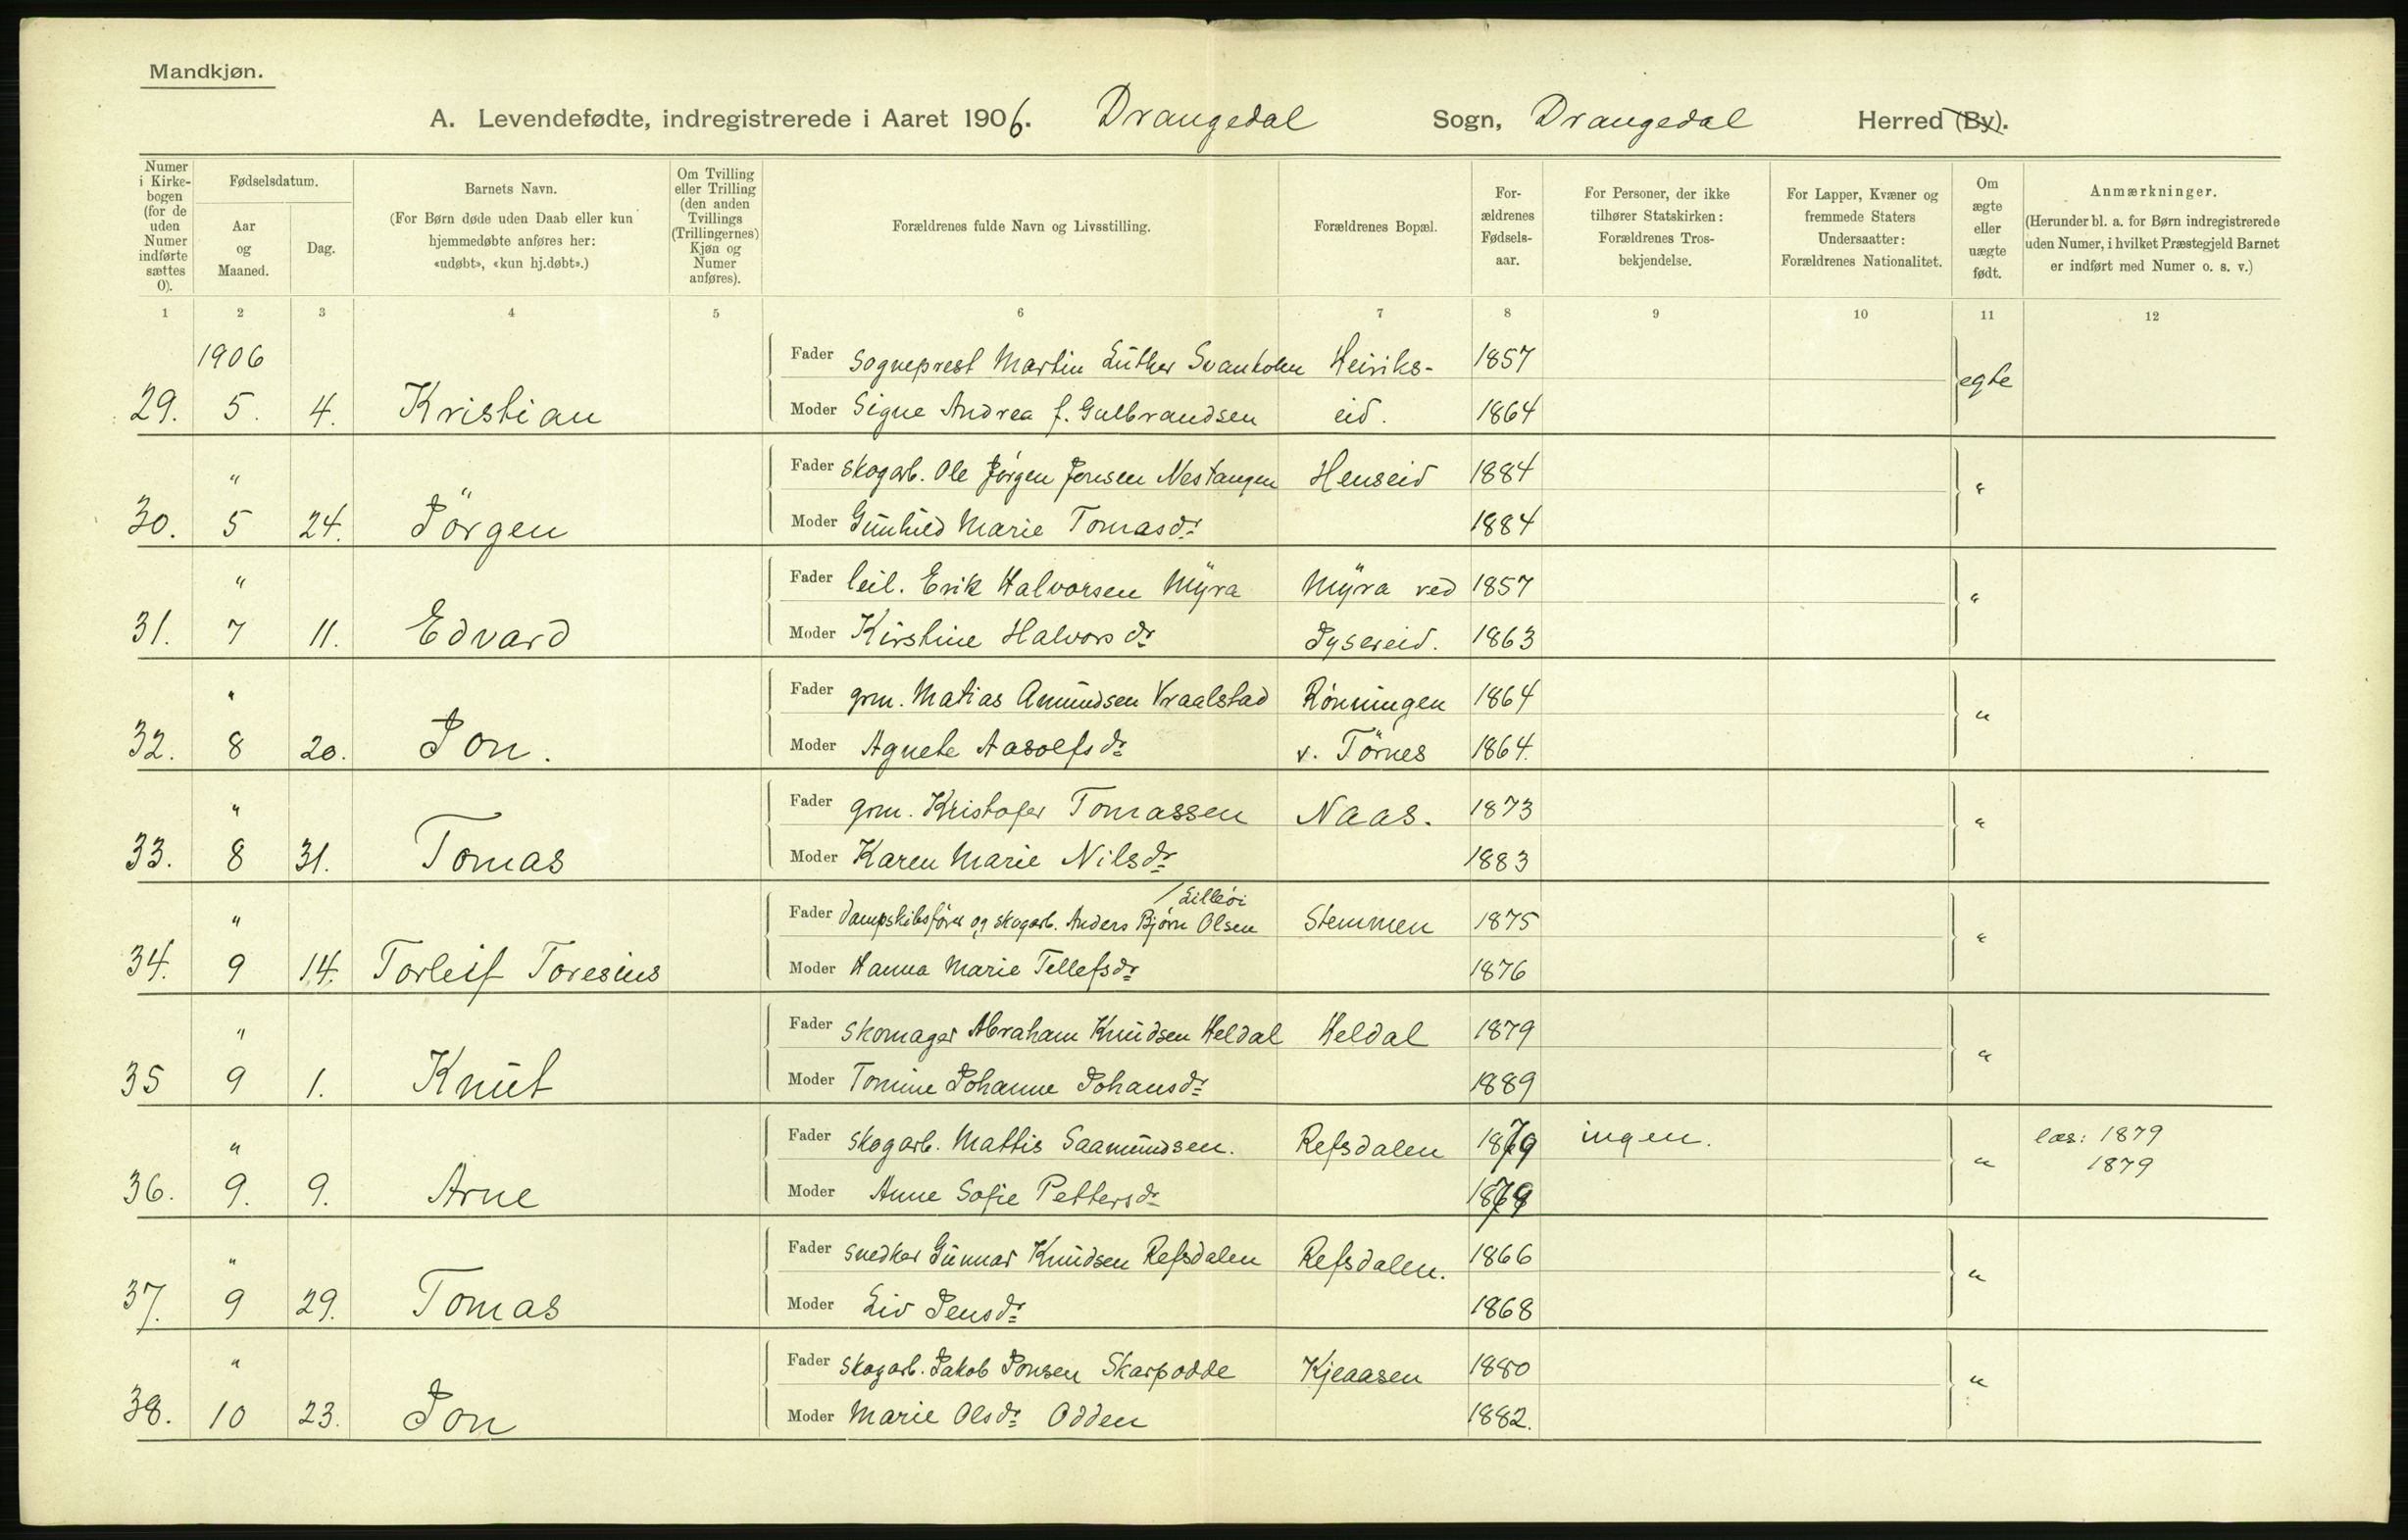 Mandkjøn.
A. Levendefødte, indregistrerede i Aaret 1906. Drangedal Sogn, Drangedal Herred (By).
Numer i Kirkebogen (for de uden Numer indførte sættes 0).
Fødselsdatum.
Aar og Maaned.
Dag.
Barnets Navn.
(For Børn døde uden Daab eller kun hjemmedøbte anføres her: «udøbt», «kun hj.døbt».)
Om Tvilling eller Trilling (den anden Tvillings (Trillingernes) Kjøn og Numer anføres).
Forældrenes fulde Navn og Livsstilling.
Forældrenes Bopæl.
For-ældrenes Fødsels-aar.
For Personer, der ikke tilhører Statskirken: Forældrenes Tros-bekjendelse.
For Lapper, Kvæner og fremmede Staters Undersaatter: Forældrenes Nationalitet.
Om ægte eller uægte født.
Anmærkninger.
(Herunder bl. a. for Børn indregistrerede uden Numer, i hvilket Præstegjeld Barnet er indført med Numer o. s. v.)
1 2 3 4 5 6 7 8 9 10 11 12
1906 Fader Sogneprest Martin Luther Svanholm Heiriks- 1857 egte
29. 5. 4. Kristian Moder Signe Andrea f. Gulbrandsen eid. 1864
" Fader Skogarb. Ole Jørgen Jensen Nestangen Henseid 1884 "
30. 5 24. Jörgen Moder Gunhild Marie Tomasdr 1884
" Fader leil. Erik Halvorsen Myra Myra ved 1857 "
31. 7 11. Edvard Moder Kirstine Halvorsdr Jysereid. 1863
" Fader grm. Matias Amundsen Vraalstad Rönningen 1864 "
32. 8 20. Jon. Moder Agnete Aasolfsdr v. Törnes 1864.
" Fader grm. Kristofer Tomassen Naas. 1873 "
33. 8 31. Tomas Moder Karen Marie Nilsdr 1883
/Lilleöi
" Fader Dampskibsfører og skogarb. Anders Bjørn Olsen Stemmen 1875 "
34. 9 14. Torleif Toresius Moder Hanna Marie Tellefsdr 1876
" Fader Skomager Abraham Knudsen Heldal Heldal 1879 "
35 9 1. Knut Moder Tomine Johanne Johansdr 1889
" Fader Skogarb. Mattis Saamundsen. Refsdalen 1879 ingen. " læs: 1879
1879
36. 9. 9. Arne Moder Anne Sofie Pettersdr 1879
" Fader snedker Gunnar Knudsen Refsdalen Refsdalen. 1866 "
37. 9 29. Tomas Moder Liv Jensdr 1868
" Fader Skogarb. Jakob Jonsen Skarpodde Kjeaasen 1880 "
38. 10 23. Jon Moder Marie Olsdr Odden 1882.